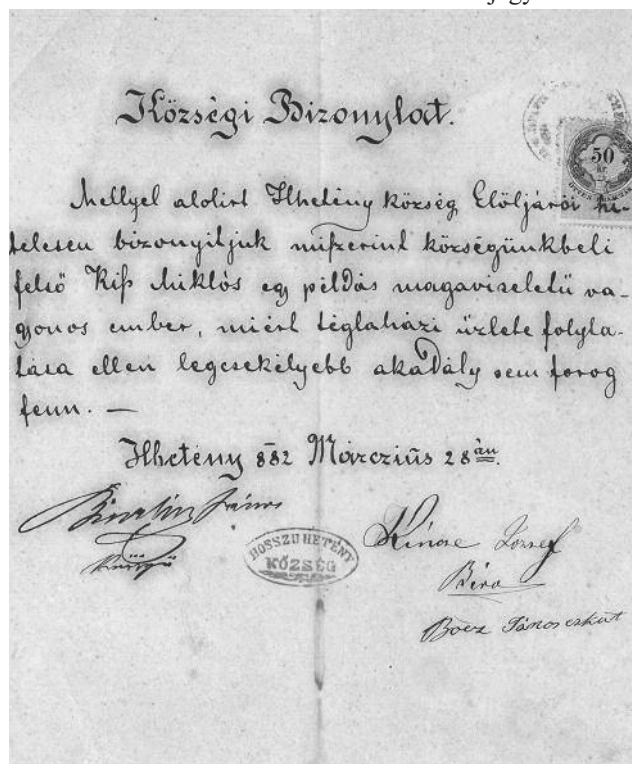 Községi Bizonylat.
50
kr
Mellyel alolirt Hhetény község Elöljárói hi-
telesen bizonyitjuk miszerint községünkbeli
felső Kiss Miklós egy példás magaviseletü va-
gyonos ember, miért téglaházi üzlete folyta-
tása ellen legcsekélyebb akadály sem forog
fenn. —
Hhetény 882 Márczius 28án.
János
HOSSZUHETÉNY
KÖZSÉG
Kincse József
Biro
Böcz János eskut